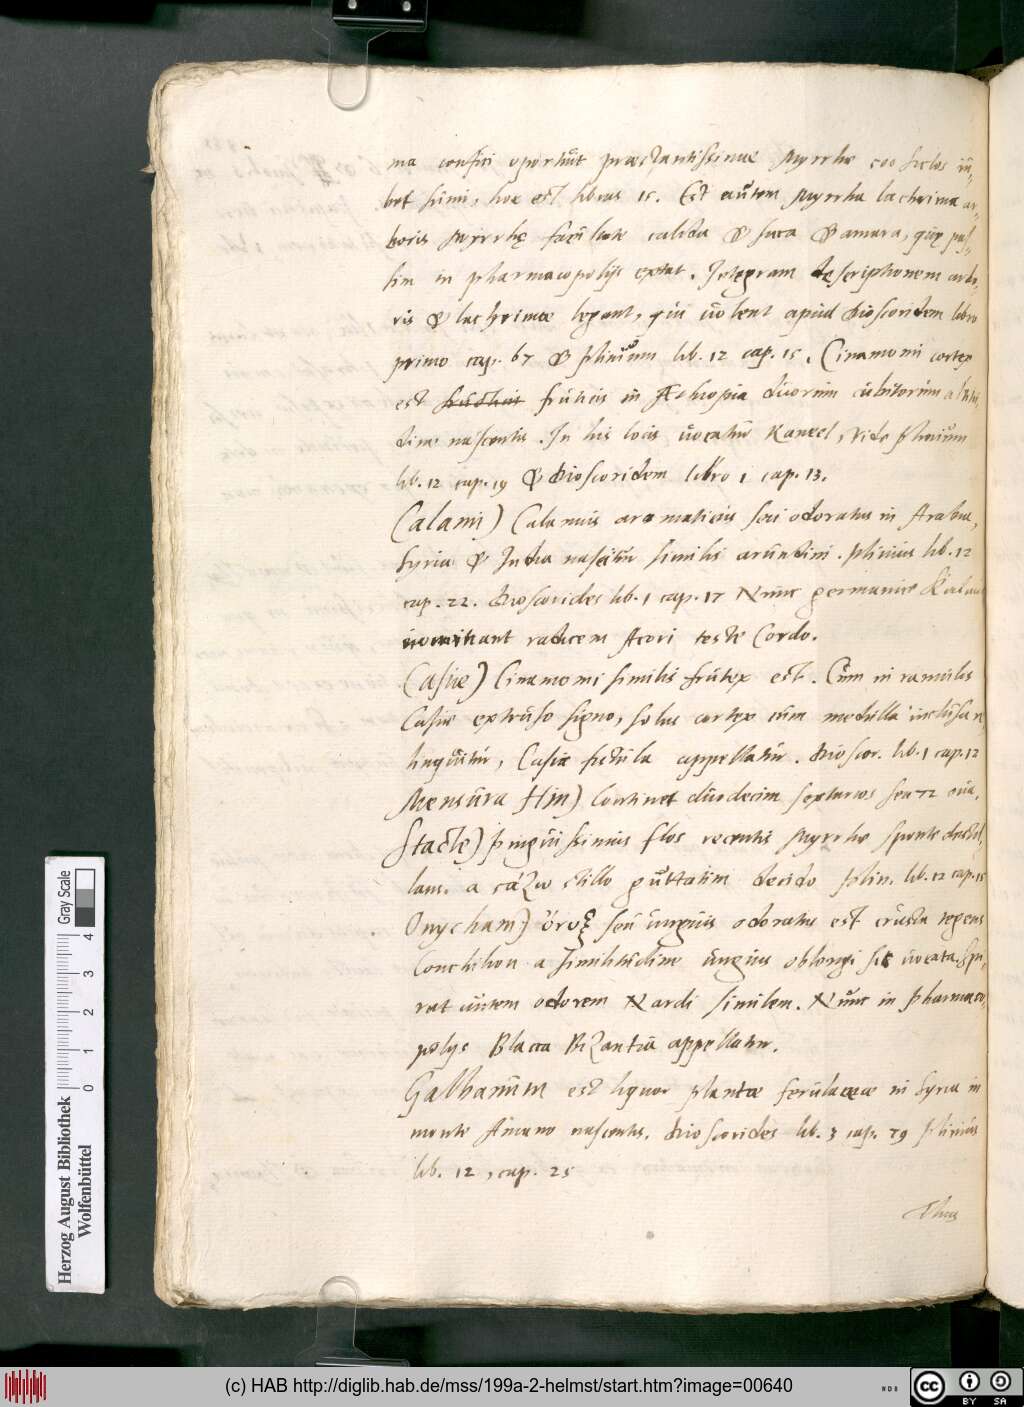 ma confici oportuit praestantissimae Myrrhae 500 siclos iu-
bet sumi, hoc est libras 15. Est autem Myrrha lachrima ar-
boris Myrrhę facultate calida & sicca & amara, quę pas-
sim in pharmacopolijs extat. Integram descriptionem arbo-
ris & lachrimae legant, qui uolent apud Dioscoridem libro
primo cap. 67 & Plinium lib. 12 cap. 15. Cinamomi cortex
est fruticis in Æthiopia duorum cubitorum alti-
dine nascentis. In his locis uocatur Kaneel, Vide Plinium
lib. 12 cap. 19 & Dioscoridem libro 1 cap. 13.
Calami) Calamus aromaticus seu odoratus in Arabia,
Syria & India nascitur similis arundini. Plinius lib. 12
cap. 22. Dioscorides lib. 1 cap. 17 Nunc germanice Kalmus
nominant radicem Acori teste Cordo.
Casiae) Cinamomi similis frutex est. Cum in ramulis
Casiae extruso ligno, solus cortex cum medulla inclusa re-
linquitur, Casia fistula appellatur. Dioscor. lib. 1 cap. 12
Mensura Hin) Continet duodecim sextarios seu 72 oua.
Stacte) pinguissimus flos recentis Myrrhae sponte destil-
lans. a σάζω stillo guttatim decido Plin. lib. 12 cap. 15
Onycham) ὄνυξ seu unguis odoratus est crusta tegens
Conchilion a similitudine unguis oblongi sic uocata. Spi-
rat autem odorem Nardi similem. Nunc in pharmaco-
polijs Blacta Bizantia appellatur.
Galbanum est liquor plantae ferulaceae in Syria in
monte Amano nascentis. Dioscorides lib. 3 cap. 79 Plinius
lib. 12, cap. 25
Thus
Gray Scale
0 1 2 3 4
Herzog August Bibliothek
Wolfenbüttel
(c) HAB http://diglib.hab.de/mss/199a-2-helmst/start.htm?image=00640
cc BY SA